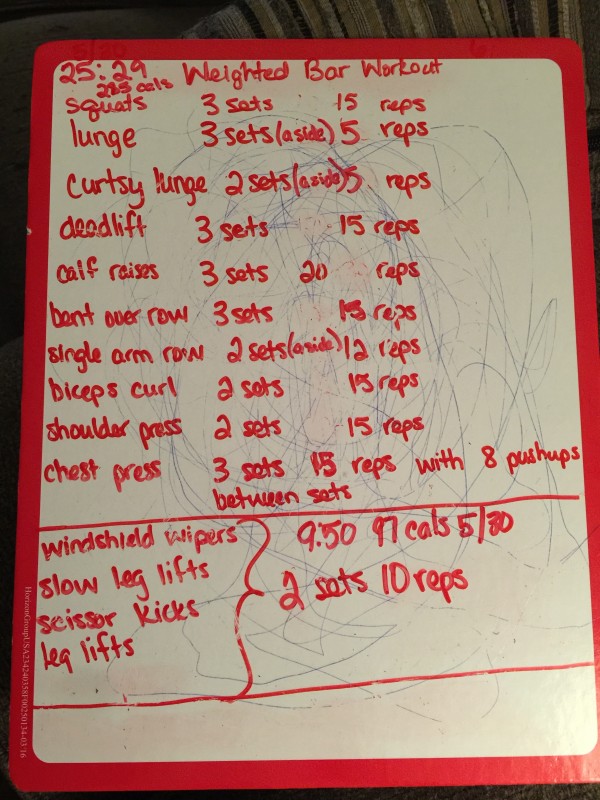 5/30
25:29 Weighted Bar Workout
225 cals
squats 3 sets 15 reps
lunge 3 sets (aside) 5 reps
curtsy lunge 2 sets (aside) 5 reps
deadlift 3 sets 15 reps
calf raises 3 sets 20 reps
bent over row 3 sets 15 reps
single arm row 2 sets (aside) 12 reps
biceps curl 2 sets 15 reps
shoulder press 2 sets 15 reps
chest press 3 sets 15 reps with 8 pushups
between sets
windshield wipers 9:50 97 cals 5/30
slow leg lifts 2 sets 10 reps
scissor kicks
leg lifts